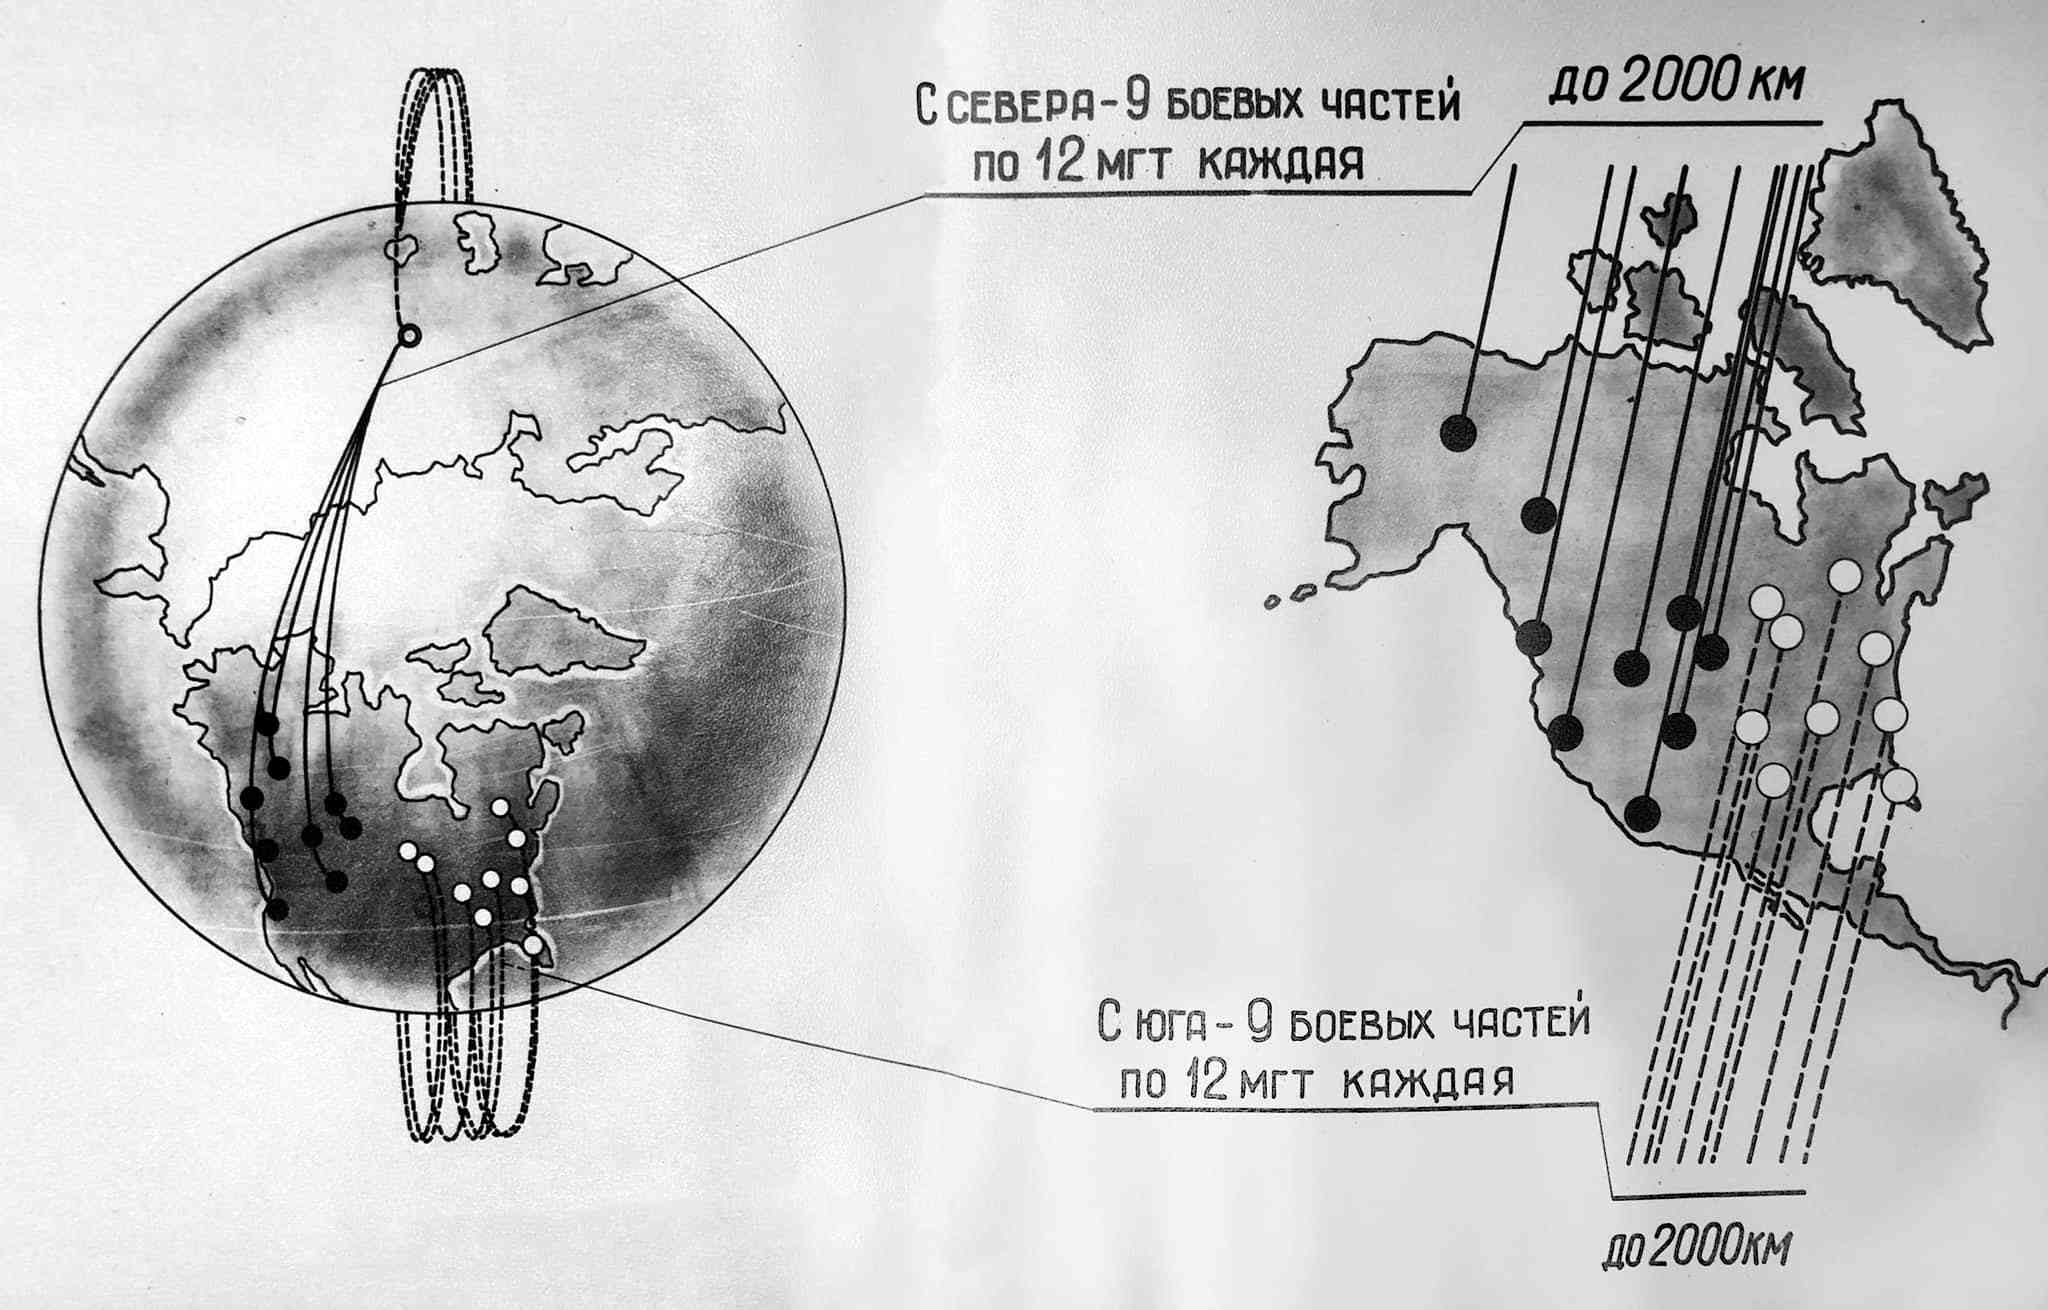 С СЕВЕРА - 9 БОЕВЫХ ЧАСТЕЙ
ПО 12 МГТ КАЖДАЯ
ДО 2000 КМ
С ЮГА - 9 БОЕВЫХ ЧАСТЕЙ
ПО 12 МГТ КАЖДАЯ
ДО 2000 КМ